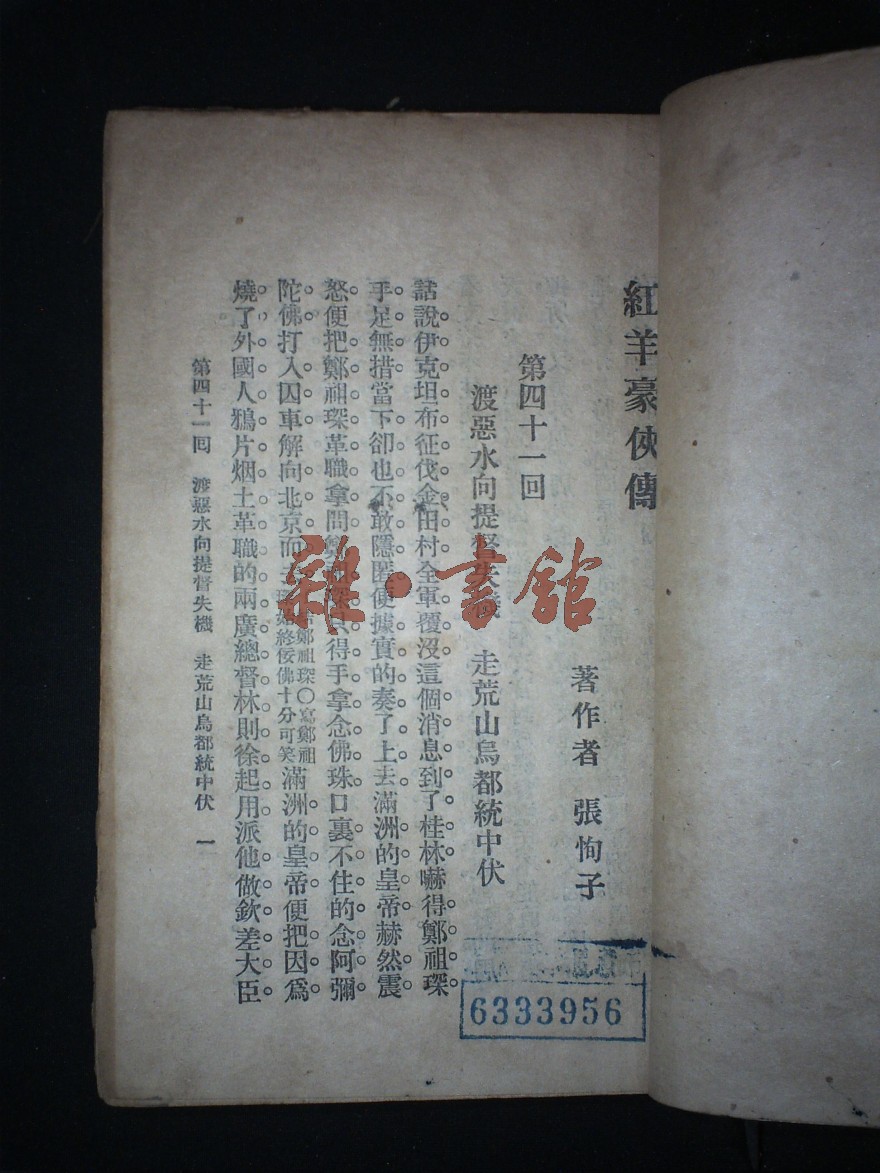 紅羊豪俠傳
著作者　張恂子
第四十一回
渡惡水向提督失機　走荒山烏都統中伏
話說伊克坦布征伐金田村全軍覆沒這個消息到了桂林嚇得鄭祖琛
手足無措當下卻也不敢隱匿便據實的奏了上去滿洲的皇帝赫然震
怒便把鄭祖琛革職拿問鄭祖琛只得手拿念佛珠口裏不住的念阿彌
陀佛打入囚車解向北京而去鄭祖琛〇寫鄭祖始終佞佛十分可笑滿洲的皇帝便把因爲
燒了外國人鴉片烟土革職的兩廣總督林則徐起用派他做欽差大臣
第四十一回　渡惡水向提督失機　走荒山烏都統中伏　一
雜·書館
6333956